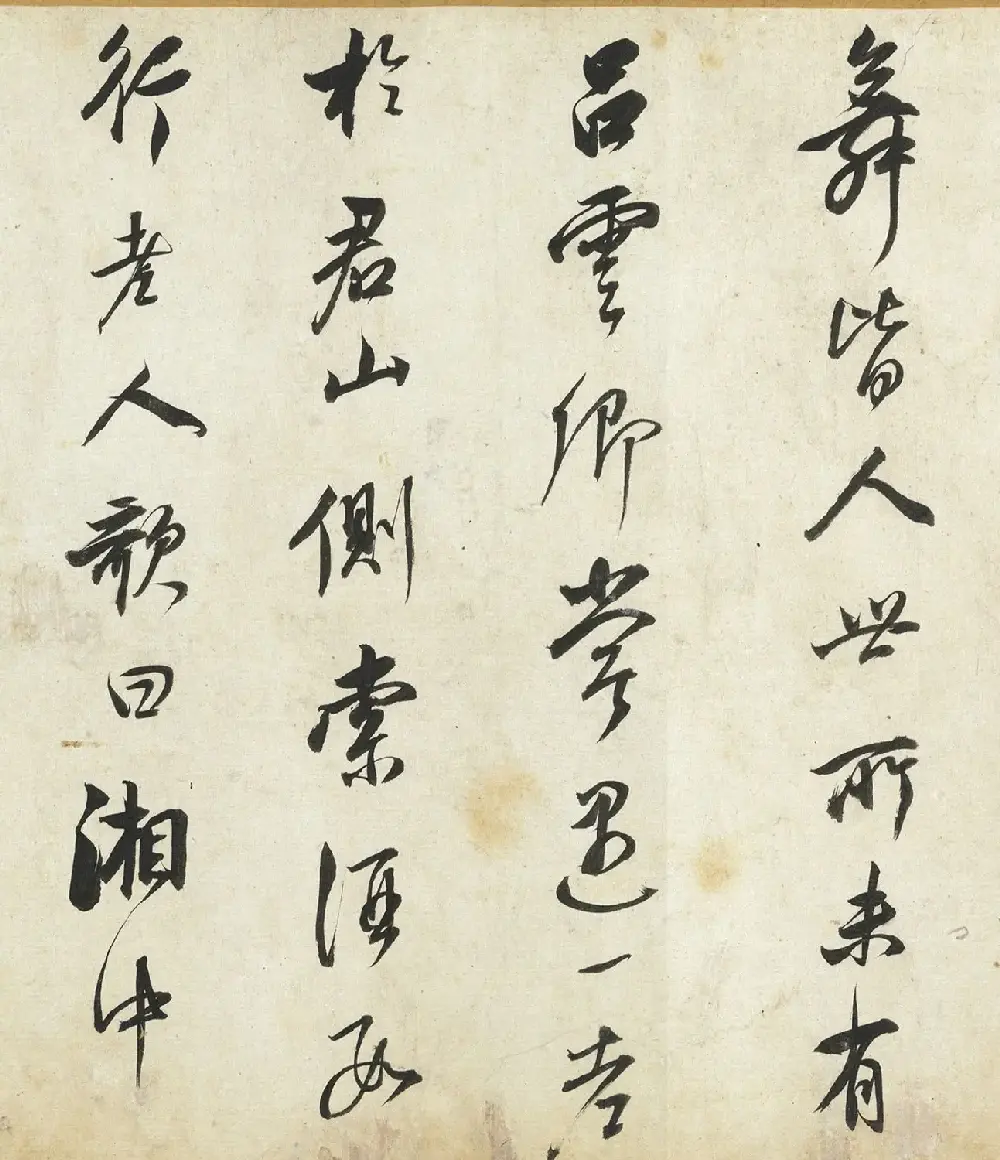 舞皆人世所未有
吕雲卿嘗遇一老
於君山側索酒數
行老人歌曰湘中